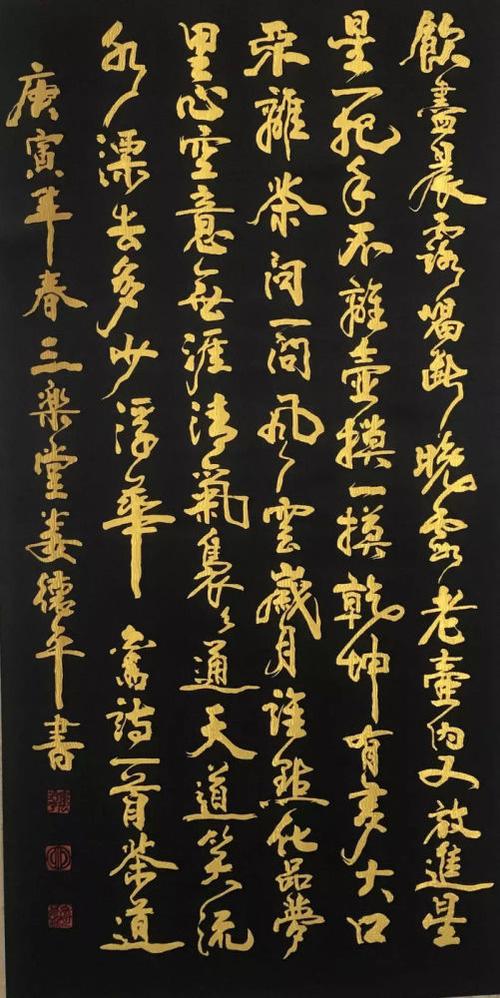 飲盡晨露喝斷晚霞老壺內又放進星
星一把手不離壺摸一摸乾坤有多大口
不離茶問一問風雲歲月誰點化品夢
里心空意無涯清氣裊々通天道笑流
水漂去多少浮華 舊詩一首茶道
庚寅年春三楽堂婁德平書